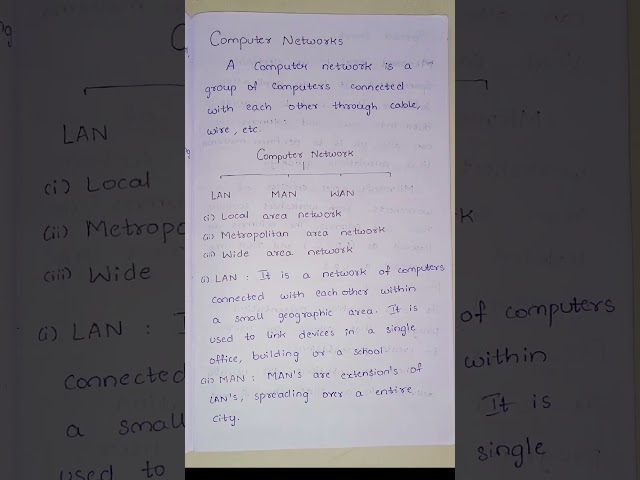 Computer Networks
A Computer network is a
group of computers connected
with each other through cable,
wire, etc.
Computer Network
LAN MAN WAN
(i) Local area network
(ii) Metropolitan area network
(iii) Wide area network
(i) LAN : It is a network of computers
connected with each other within
a small geographic area. It is
used to link devices in a single
office, building or a school.
(ii) MAN : MAN's are extension's of
LAN's, spreading over a entire
city.
LAN
(i) Local
(ii) Metropo
(iii) Wide
(i) LAN : I
connected
a small
used to
k
of computers
within
It is
single